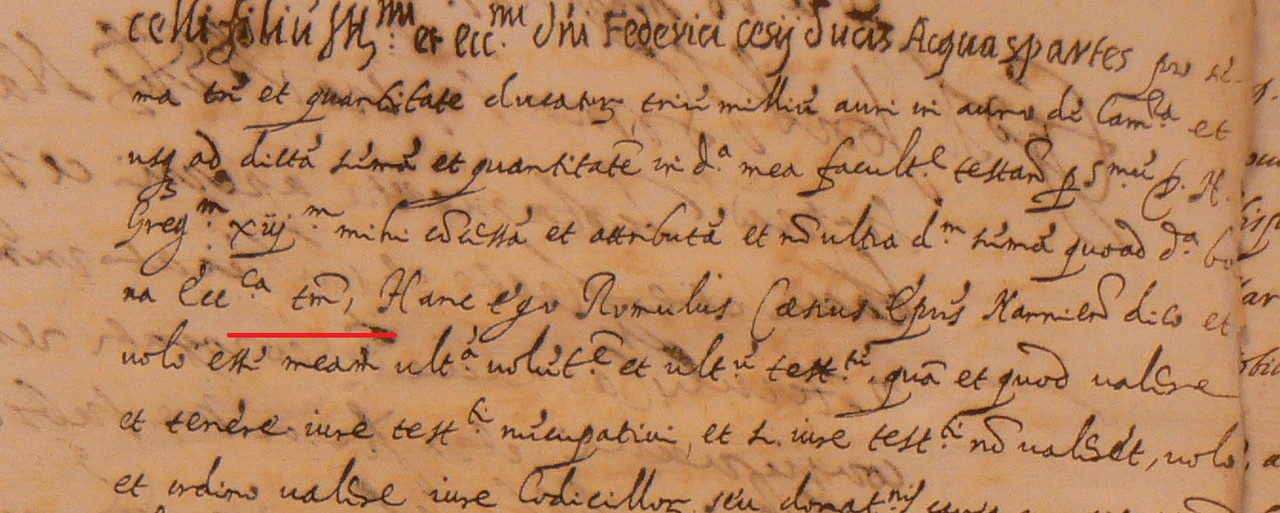 celli filiū Ill.mi et ecc.mi dn̄i Federici cesij ducis Acquaspartes pro sū
ma tn̄ et quantitate ducatorꝝ triū milliū auri in auro de Cam.ra et
usq ad dictā sūmā et quantitatē in d.a mea facult.e testan̄ ꝑ S.mū D. N.
Greg.m xiij.m mihi cōcessā et attributā et nō ultra d.m sūmā quoad d.a bo
na Ecc.ca tm̄, Hanc ego Romulus Cæsius Ep̄us Narnien̄ dico et
volo esse meam ult.ā volūt.ē et ult.ū test.tū quā et quod valere
et tenere iure test.ti nūcupativi, et si iure test.ti nō valeret, volo
et ordino valere iure Codicillorꝝ seu donat.nis